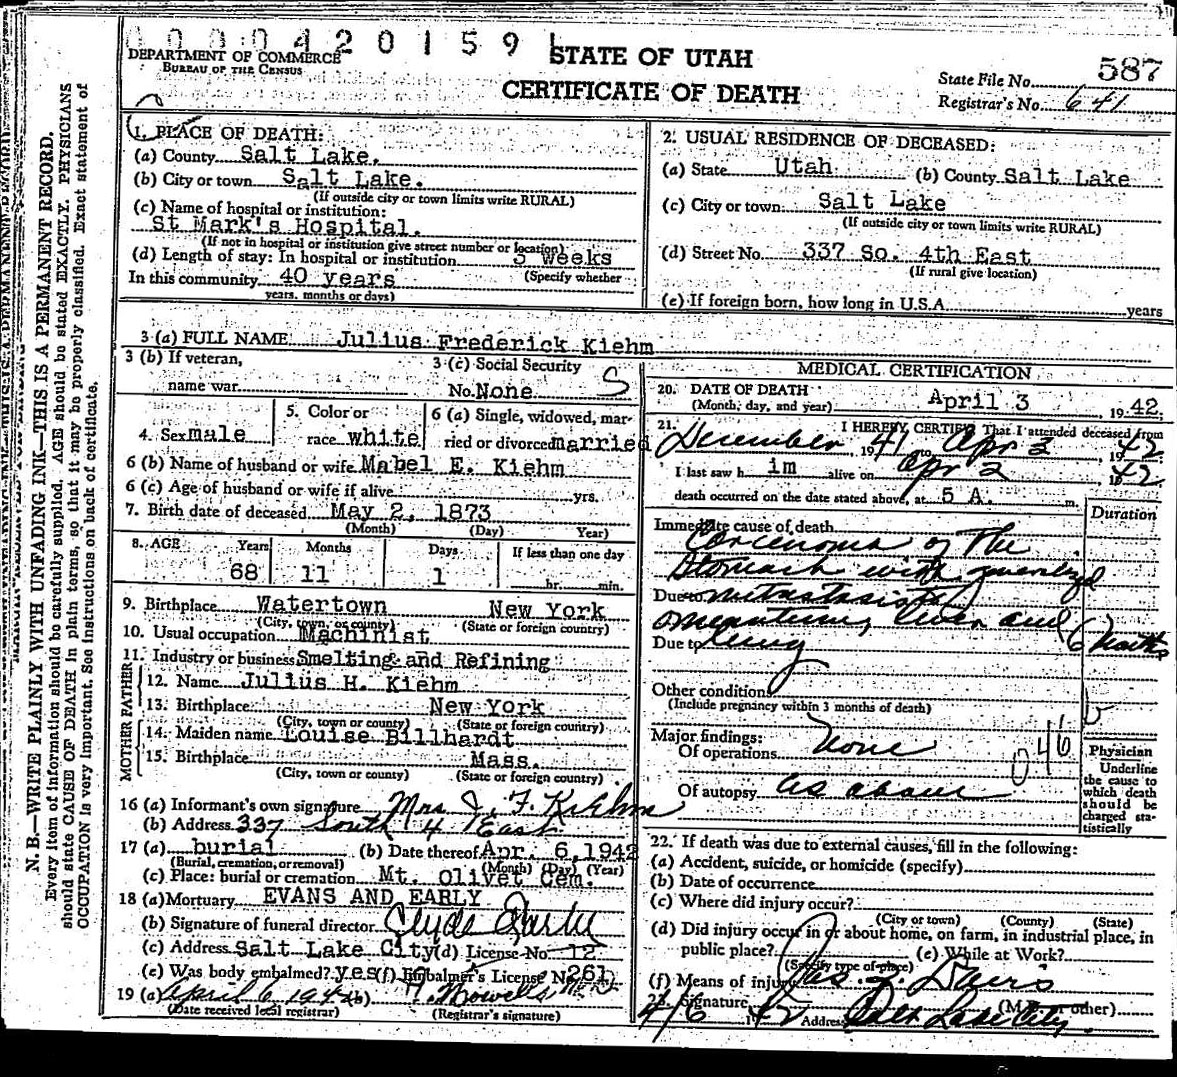 0000420159
DEPARTMENT OF COMMERCE
BUREAU OF THE CENSUS
STATE OF UTAH
CERTIFICATE OF DEATH
587
State File No.
Registrar's No. 641
N. B.—WRITE PLAINLY WITH UNFADING INK—THIS IS A PERMANENT RECORD.
Every item of information should be carefully supplied. AGE should be stated EXACTLY. PHYSICIANS
should state CAUSE OF DEATH in plain terms, so that it may be properly classified. Exact statement of
OCCUPATION is very important. See instructions on back of certificate.
1. PLACE OF DEATH:
(a) County Salt Lake.
(b) City or town Salt Lake.
(If outside city or town limits write RURAL)
(c) Name of hospital or institution:
St Mark's Hospital.
(If not in hospital or institution give street number or location)
(d) Length of stay: In hospital or institution 3 weeks
In this community 40 years (Specify whether
years, months or days)
2. USUAL RESIDENCE OF DECEASED:
(a) State Utah (b) County Salt Lake
(c) City or town Salt Lake
(If outside city or town limits write RURAL)
(d) Street No. 337 So. 4th East
(If rural give location)
(e) If foreign born, how long in U.S.A. years
3 (a) FULL NAME Julius Frederick Kiehm
3 (b) If veteran, 3 (c) Social Security
name war No. None S
4. Sex male
5. Color or
race white
6 (a) Single, widowed, mar-
ried or divorced married
6 (b) Name of husband or wife Mabel E. Kiehm
6 (c) Age of husband or wife if alive yrs.
7. Birth date of deceased May 2, 1873
(Month) (Day) (Year)
8. AGE Years Months Days If less than one day
68 11 1 hr. min.
9. Birthplace Watertown New York
(City, town, or county) (State or foreign country)
10. Usual occupation Machinist
11. Industry or business Smelting and Refining
FATHER
12. Name Julius H. Kiehm
13. Birthplace New York
(City, town or county) (State or foreign country)
MOTHER
14. Maiden name Louise Billhardt
15. Birthplace Mass.
(City, town or county) (State or foreign country)
16 (a) Informant's own signature Mrs J. F. Kiehm
(b) Address 337 South 4 East
17 (a) burial (b) Date thereof Apr. 6, 1942
(Burial, cremation, or removal) (Month) (Day) (Year)
(c) Place: burial or cremation Mt. Olivet Cem.
18 (a) Mortuary EVANS AND EARLY
(b) Signature of funeral director Clyde Early
(c) Address Salt Lake City (d) License No. 12
(e) Was body embalmed? yes (f) Embalmer's License No. 261
19 (a) April 6, 1942 (b)
(Date received local registrar) (Registrar's signature)
MEDICAL CERTIFICATION
20. DATE OF DEATH
(Month, day, and year) April 3, 19 42.
21. I HEREBY CERTIFY That I attended deceased from
December, 19 41 to Apr 3 19 42.
I last saw h im alive on Apr 2 19 42.
death occurred on the date stated above, at 5 A. m.
Duration
Immediate cause of death
Carcinoma of the
stomach with generlzd
Due to metastasis to
omentum, liver and 6 months
Due to lung
Other conditions
(Include pregnancy within 3 months of death)
Major findings:
Of operations None
046 b
Of autopsy as above
Physician
Underline
the cause to
which death
should be
charged sta-
tistically
22. If death was due to external causes, fill in the following:
(a) Accident, suicide, or homicide (specify)
(b) Date of occurrence
(c) Where did injury occur?
(City or town) (County) (State)
(d) Did injury occur in or about home, on farm, in industrial place, in
public place? (e) While at Work?
(Specify type of place)
(f) Means of injury
23. Signature Jas. Z. Davis (M.D. or other)
4/6 19 42 Address Salt Lake City.